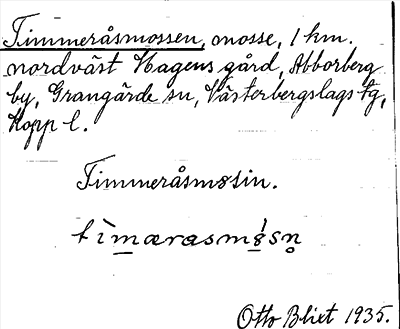 Timmeråsmossen, mosse, 1 km.
nordväst Hagens gård, Abborberg
by, Grangärde sn, Västerbergslags tg,
Kopp l.
Timmeråsmosin.
Otto Blixt 1935.